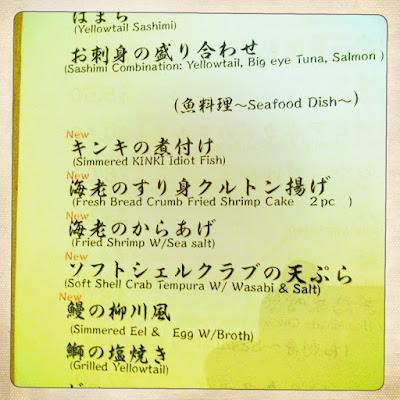 はまち
(Yellowtail Sashimi)
お刺身の盛り合わせ
(Sashimi Combination: Yellowtail, Big eye Tuna, Salmon )
(魚料理～Seafood Dish～)
New
キンキの煮付け
(Simmered KINKI Idiot Fish)
New
海老のすり身クルトン揚げ
(Fresh Bread Crumb Fried Shrimp Cake 2pc )
New
海老のからあげ
(Fried Shrimp W/Sea salt)
New
ソフトシェルクラブの天ぷら
(Soft Shell Crab Tempura W/ Wasabi & Salt)
New
鰻の柳川風
(Simmered Eel & Egg W/Broth)
鰤の塩焼き
(Grilled Yellowtail)